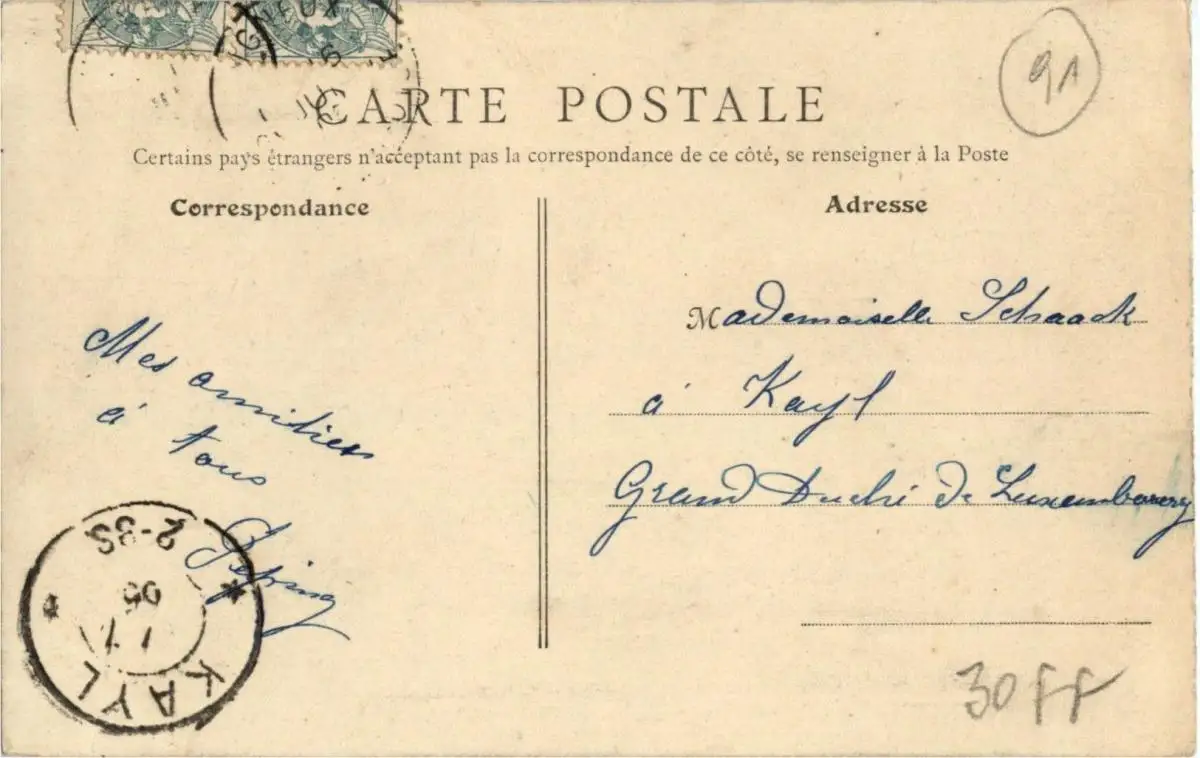 91
CARTE POSTALE
Certains pays étrangers n'acceptant pas la correspondance de ce côté, se renseigner à la Poste
Correspondance
Mes amitiés
à tous
Adresse
Mademoiselle Schaack
à Kayl
Grand Duché de Luxembourg
KAYL
2-3S
30 FF